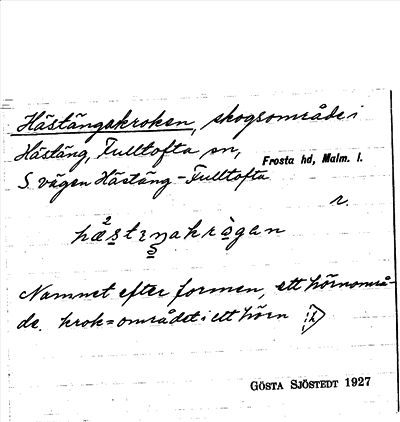 Hästängakroken, skogsområde i
Hästäng, Fulltofta sn, Frosta hd, Malm. l.
S. vägen Hästäng - Fulltofta
r.
Namnet efter formen, ett hörnområ-
de. krok = området i ett hörn
GÖSTA SJÖSTEDT 1927